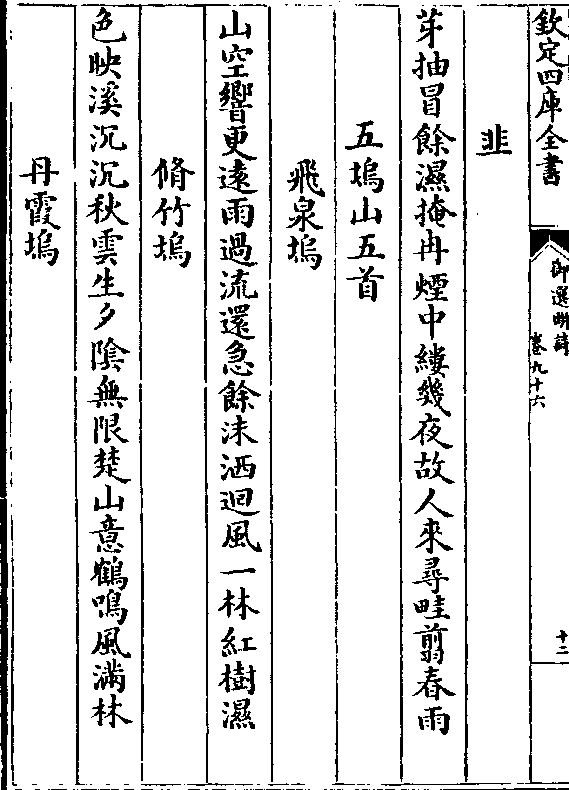 欽定四庫全書
御選明詩
卷九十六
十二
韭
芽抽冒餘濕掩冉煙中縷幾夜故人來尋畦翦春雨
五塢山五首
飛泉塢
山空響更遠雨過流還急餘沫洒迴風一林紅樹濕
脩竹塢
色映溪沉沉秋雲生夕陰無限楚山意鶴鳴風滿林
丹霞塢